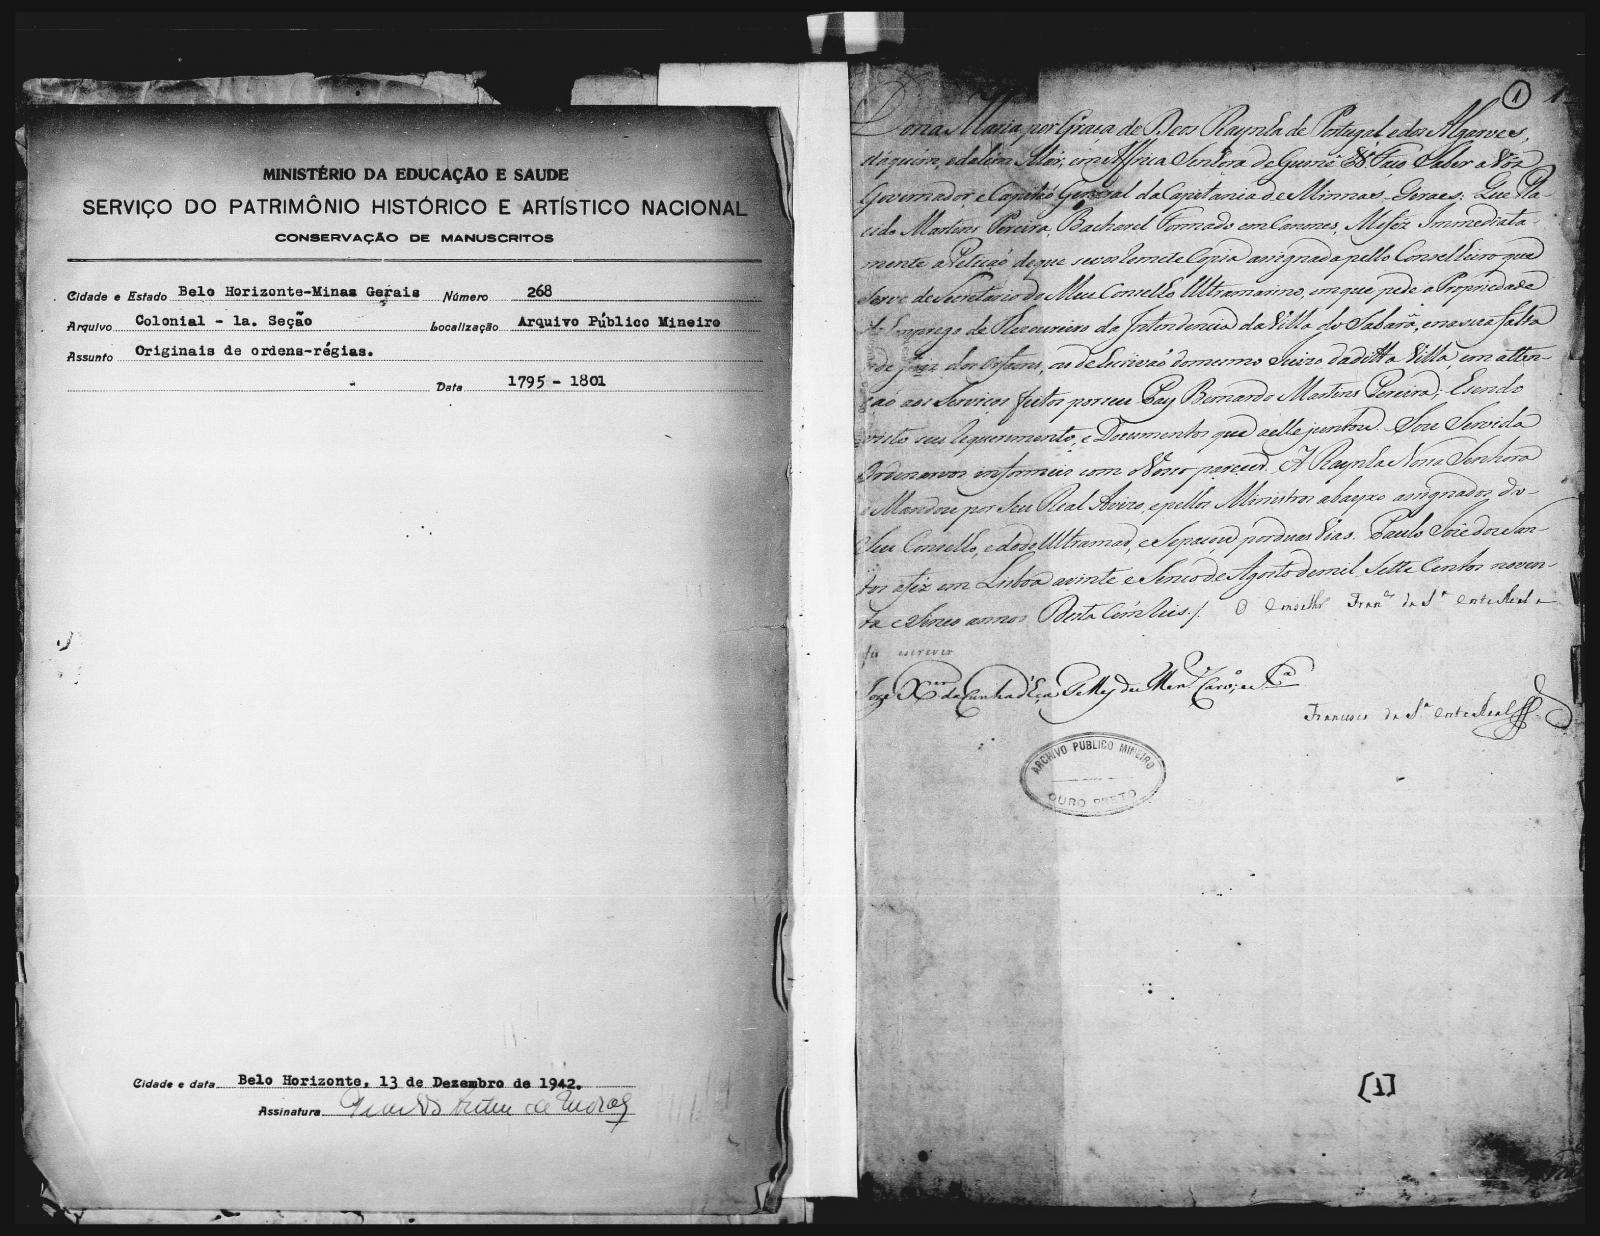 MINISTÉRIO DA EDUCAÇÃO E SAUDE
SERVIÇO DO PATRIMÔNIO HISTÓRICO E ARTÍSTICO NACIONAL
CONSERVAÇÃO DE MANUSCRITOS
Cidade e Estado Belo Horizonte-Minas Gerais Número 268
Arquivo Colonial - 1a. Seção Localização Arquivo Público Mineiro
Assunto Originais de ordens-régias.
Data 1795 - 1801
Cidade e data Belo Horizonte, 13 de Dezembro de 1942.
Assinatura
1
Dona Maria por Graça de Deos Raynha de Portugal e dos Algarves,
daquem, e dalem Mar, em Affrica Senhora de Guiné &ª. Faço Saber a Vós
Governador e Capitão General da Capitania de Minnas Geraes: Que Pla-
cido Martins Pereira, Bacharel Formado em Canones, Mefez Immediata-
mente a Petição de que se vos remete Copia assignada pello Conselheiro que
serve de Secretario do Meu Conselho Ultramarino, em que pede a Propriedade
do Emprego de Thezoureiro da Intendencia da Villa do Sabará, e na sua falta
de Juiz dos Orfaons, ou de Escrivão do mesmo Juizo da ditta Villa, em atten-
ção aos Serviços feitos por seu Pay Bernardo Martins Pereira; E sendo
visto seu requerimento, e Documentos que a elle juntou. Sou Servida
Ordenarvos informeis com o Vosso parecer. A Raynha Nossa Senhora
o Mandou por Seu Real Avizo, e pellos Ministros abayxo assignados do
Seu Conselho, e do do Ultramar, e se passou por duas Vias. Paulo Jozé dos San-
tos a fez em Lisboa a vinte e Sinco de Agosto de mil Sette Centos noven-
ta e Sinco annos Desta Cem reis. / O Conselhrº Franco da Sª Corte Real a
fes escrever
Francisco da Sª Corte Real
ARCHIVO PUBLICO MINEIRO
OURO PRETO
[1]